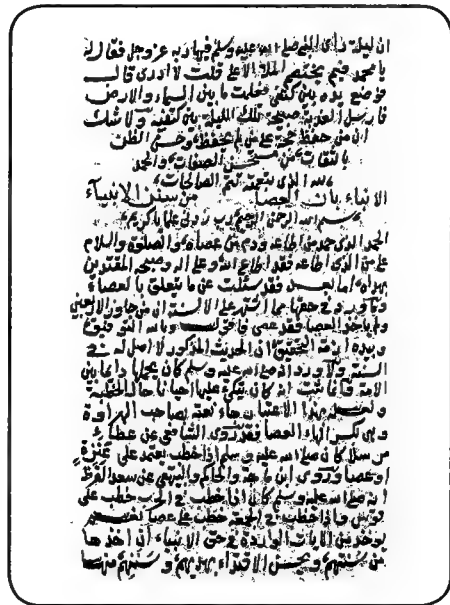 ان ليلة رأى النبي صلى الله عليه وسلم فيها ربه عز وجل فقال له
يا محمد فيم يختصم الملأ الاعلى قلت لا ادري قال
فوضع يده بين كتفي فعلمت ما بين السماء والارض
تلك الليلة بين كتفيه ولا شك
ان من حفظ حجة على من لم يحفظ وحسن الظن
بالثقات من الصفات والحمد
لله الذي بنعمته تتم الصالحات
الانباء بان العصا من سنن الانبياء
بسم الله الرحمن الرحيم رب زدني علما يا كريم
الحمد لله الذي حمد من اطاعه وذم من عصاه والصلوة والسلام
على من الذي اطاعه فقد اطاع الله وعلى اله وصحبه المقتدين
بهداه اما بعد فقد سئلت عن ما يتعلق بالعصاء
وما ورد في حقها مما اشتهر على الالسنة ان من جاوز الاربعين
ولم يأخذ العصا فقد عصى فاقول وبالله التوفيق
وبيده ازمة التحقيق ان الحديث المذكور لا اصل له في
السنة ولا ورد انه صلى الله عليه وسلم كان يحملها دائما بين
الامة وانما ثبت انه كان يتكئ عليها احيانا حال الخطبة
ولعل بهذا الاعتبار جاء نعته بصاحب الهراوة
وهي بكسر الهاء العصا فقد روى الشافعي عن عطاء
مرسلا كان صلى الله عليه وسلم اذا خطب يعتمد على عنزة
او عصا وروى ابن ماجة والحاكم والبيهقي عن سعد القرظ
انه صلى الله عليه وسلم كان اذا خطب في الحرب خطب على
قوس واذا خطب في الجمعة خطب على عصا نعم
يؤخذ من الايات الواردة في حق الانبياء ان اخذها
من سنتهم ويحسن الاقتداء بهديهم وسنتهم منها